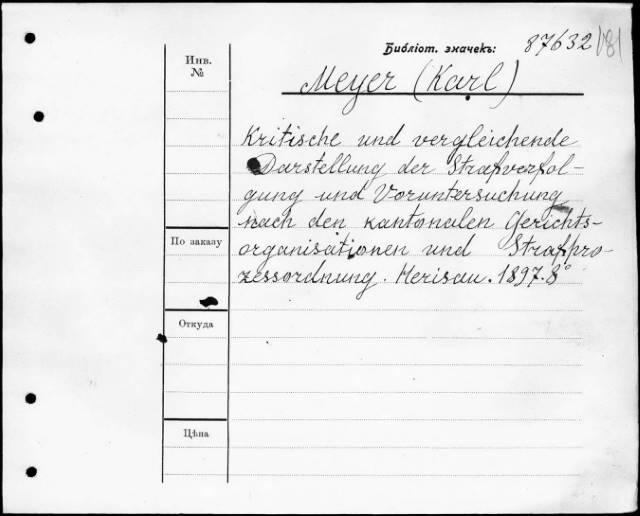 Библіот. значекъ: 87632
Инв.
№
Meyer (Karl)
Kritische und vergleichende
Darstellung der Strafverfol-
gung und Voruntersuchung
nach den kantonalen Gerichts-
organisationen und Strafpro-
zessordnung. Herisau. 1897. 8°
По заказу
Откуда
Цѣна